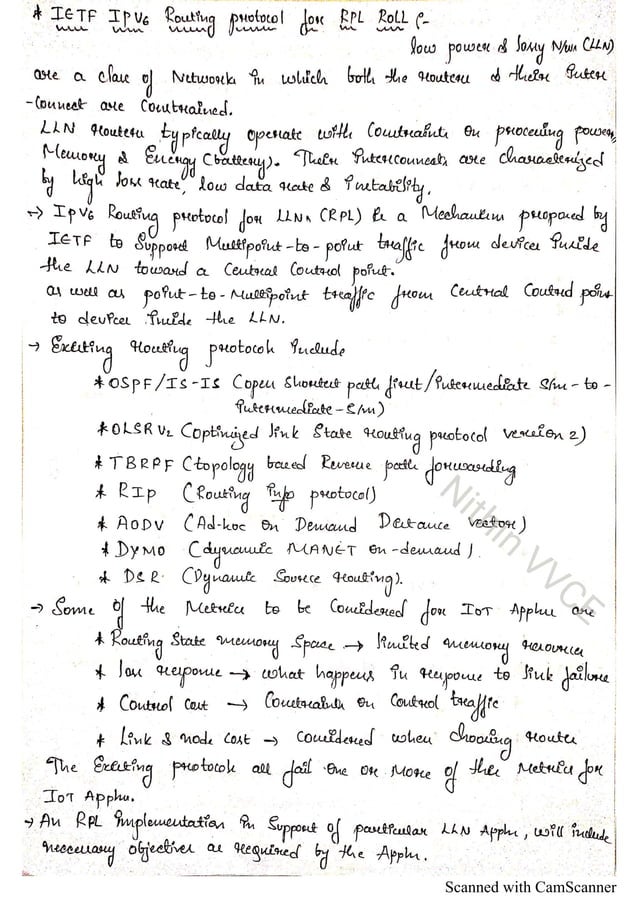 * IETF IPV6 Routing protocol for RPL ROLL :-
low power & lossy N/ws (LLN)
are a class of Networks in which both the routers & their inter
-connect are Constrained.
LLN routers typically operate with Constraints on processing power,
Memory & Energy (battery). Their Interconnects are characterized
by high loss rate, low data rate & instability.
→ IPV6 Routing protocol for LLNs (RPL) is a Mechanism proposed by
IETF to Support Multipoint-to-point traffic from devices Inside
the LLN toward a Central Control point.
as well as point-to-Multipoint traffic from Central Control point
to devices inside the LLN.
→ Existing routing protocols include
* OSPF/IS-IS (open Shortest path first/intermediate S/m-to-
intermediate-S/m)
* OLSR V2 (optimized link State routing protocol version 2)
* TBRPF (topology based Reverse path forwarding
* RIP (Routing info protocol)
* AODV (Ad-hoc on Demand Distance Vector)
* DYMO (dynamic MANET on-demand)
* DSR (Dynamic Source routing).
→ Some of the Metrics to be Considered for IoT Applns are
* Routing State memory Space → limited memory resources
* loss response → what happens in response to link failure
* Control Cost → Constraints on Control traffic
* Link & node cost → considered when choosing routes
The Existing protocols all fail one or More of these Metrics for
IoT Applns.
→ An RPL Implementation in Support of particular LLN Appln, will include
necessary objectives as required by the Appln.
Nithin VVCE
Scanned with CamScanner